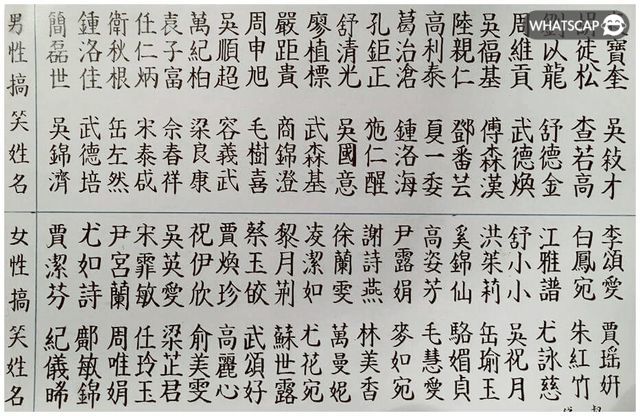 WHATSCAP
男性搞笑姓名
簡磊世 吳錦濟
鍾洛住 武德培
衛秋根 缶左然
任仁炳 宋泰戌
袁子富 佘春祥
萬紀柏 梁良康
吳順超 容義武
周申旭 毛樹喜
嚴距貴 商錦澄
廖植標 武森基
舒清光 吳國意
孔鉅正 施仁醒
葛治滄 鍾洛海
高利泰 夏一委
陸親仁 鄧番芸
吳福基 傅森漢
周維貢 武德煥
以龍 舒德金
徒松 查若高
寶奎 吳敍才
女性搞笑姓名
賈潔芬 紀儀晞
尤如詩 鄺敏錦
尹宮蘭 周唯娟
宋霏敏 任玲玉
吳英愛 梁芷君
祝伊欣 俞美雯
賈煥珍 高麗心
蔡玉皎 武頌好
黎月荊 蘇世露
凌潔如 尤花宛
徐蘭雯 萬曼妮
謝詩燕 林美香
尹露娟 麥如宛
高姿芳 毛慧愛
奚錦仙 駱媚貞
洪茱莉 缶瑜玉
舒小小 吳祝月
江雅譜 尤詠慈
白鳳宛 朱紅竹
李頌愛 賈瑤妍